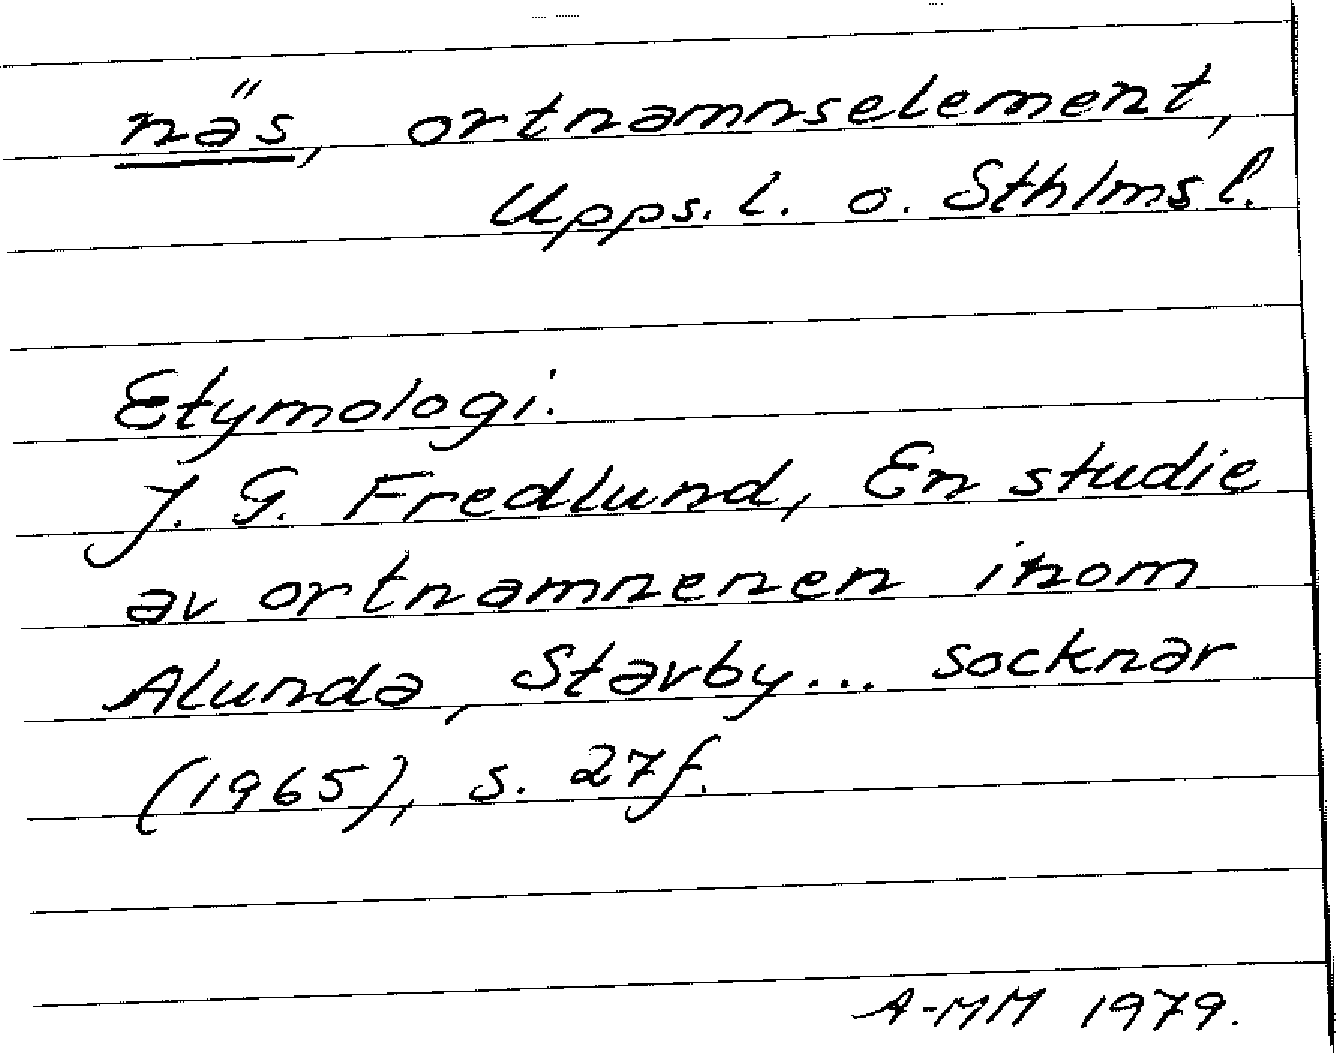 näs, ortnamnselement,
Upps. l. o. Sthlms l.
Etymologi.
J. G. Fredlund, En studie
av ortnamnenen inom
Alunda, Stavby... socknar
(1965), s. 27f.
A-MM 1979.